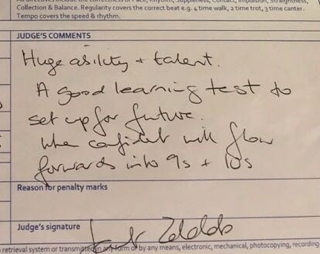 Collection & Balance. Regularity covers the correct beat e.g. 4 time walk, 2 time trot, 3 time canter.
Tempo covers the speed & rhythm.
JUDGE'S COMMENTS
Huge ability + talent.
A good learning test to
set up for future.
When confident will flow
forwards into 9s + 10s
Reason for penalty marks
Judge's signature
retrieval system or transmitted in any form or by any means, electronic, mechanical, photocopying, recording